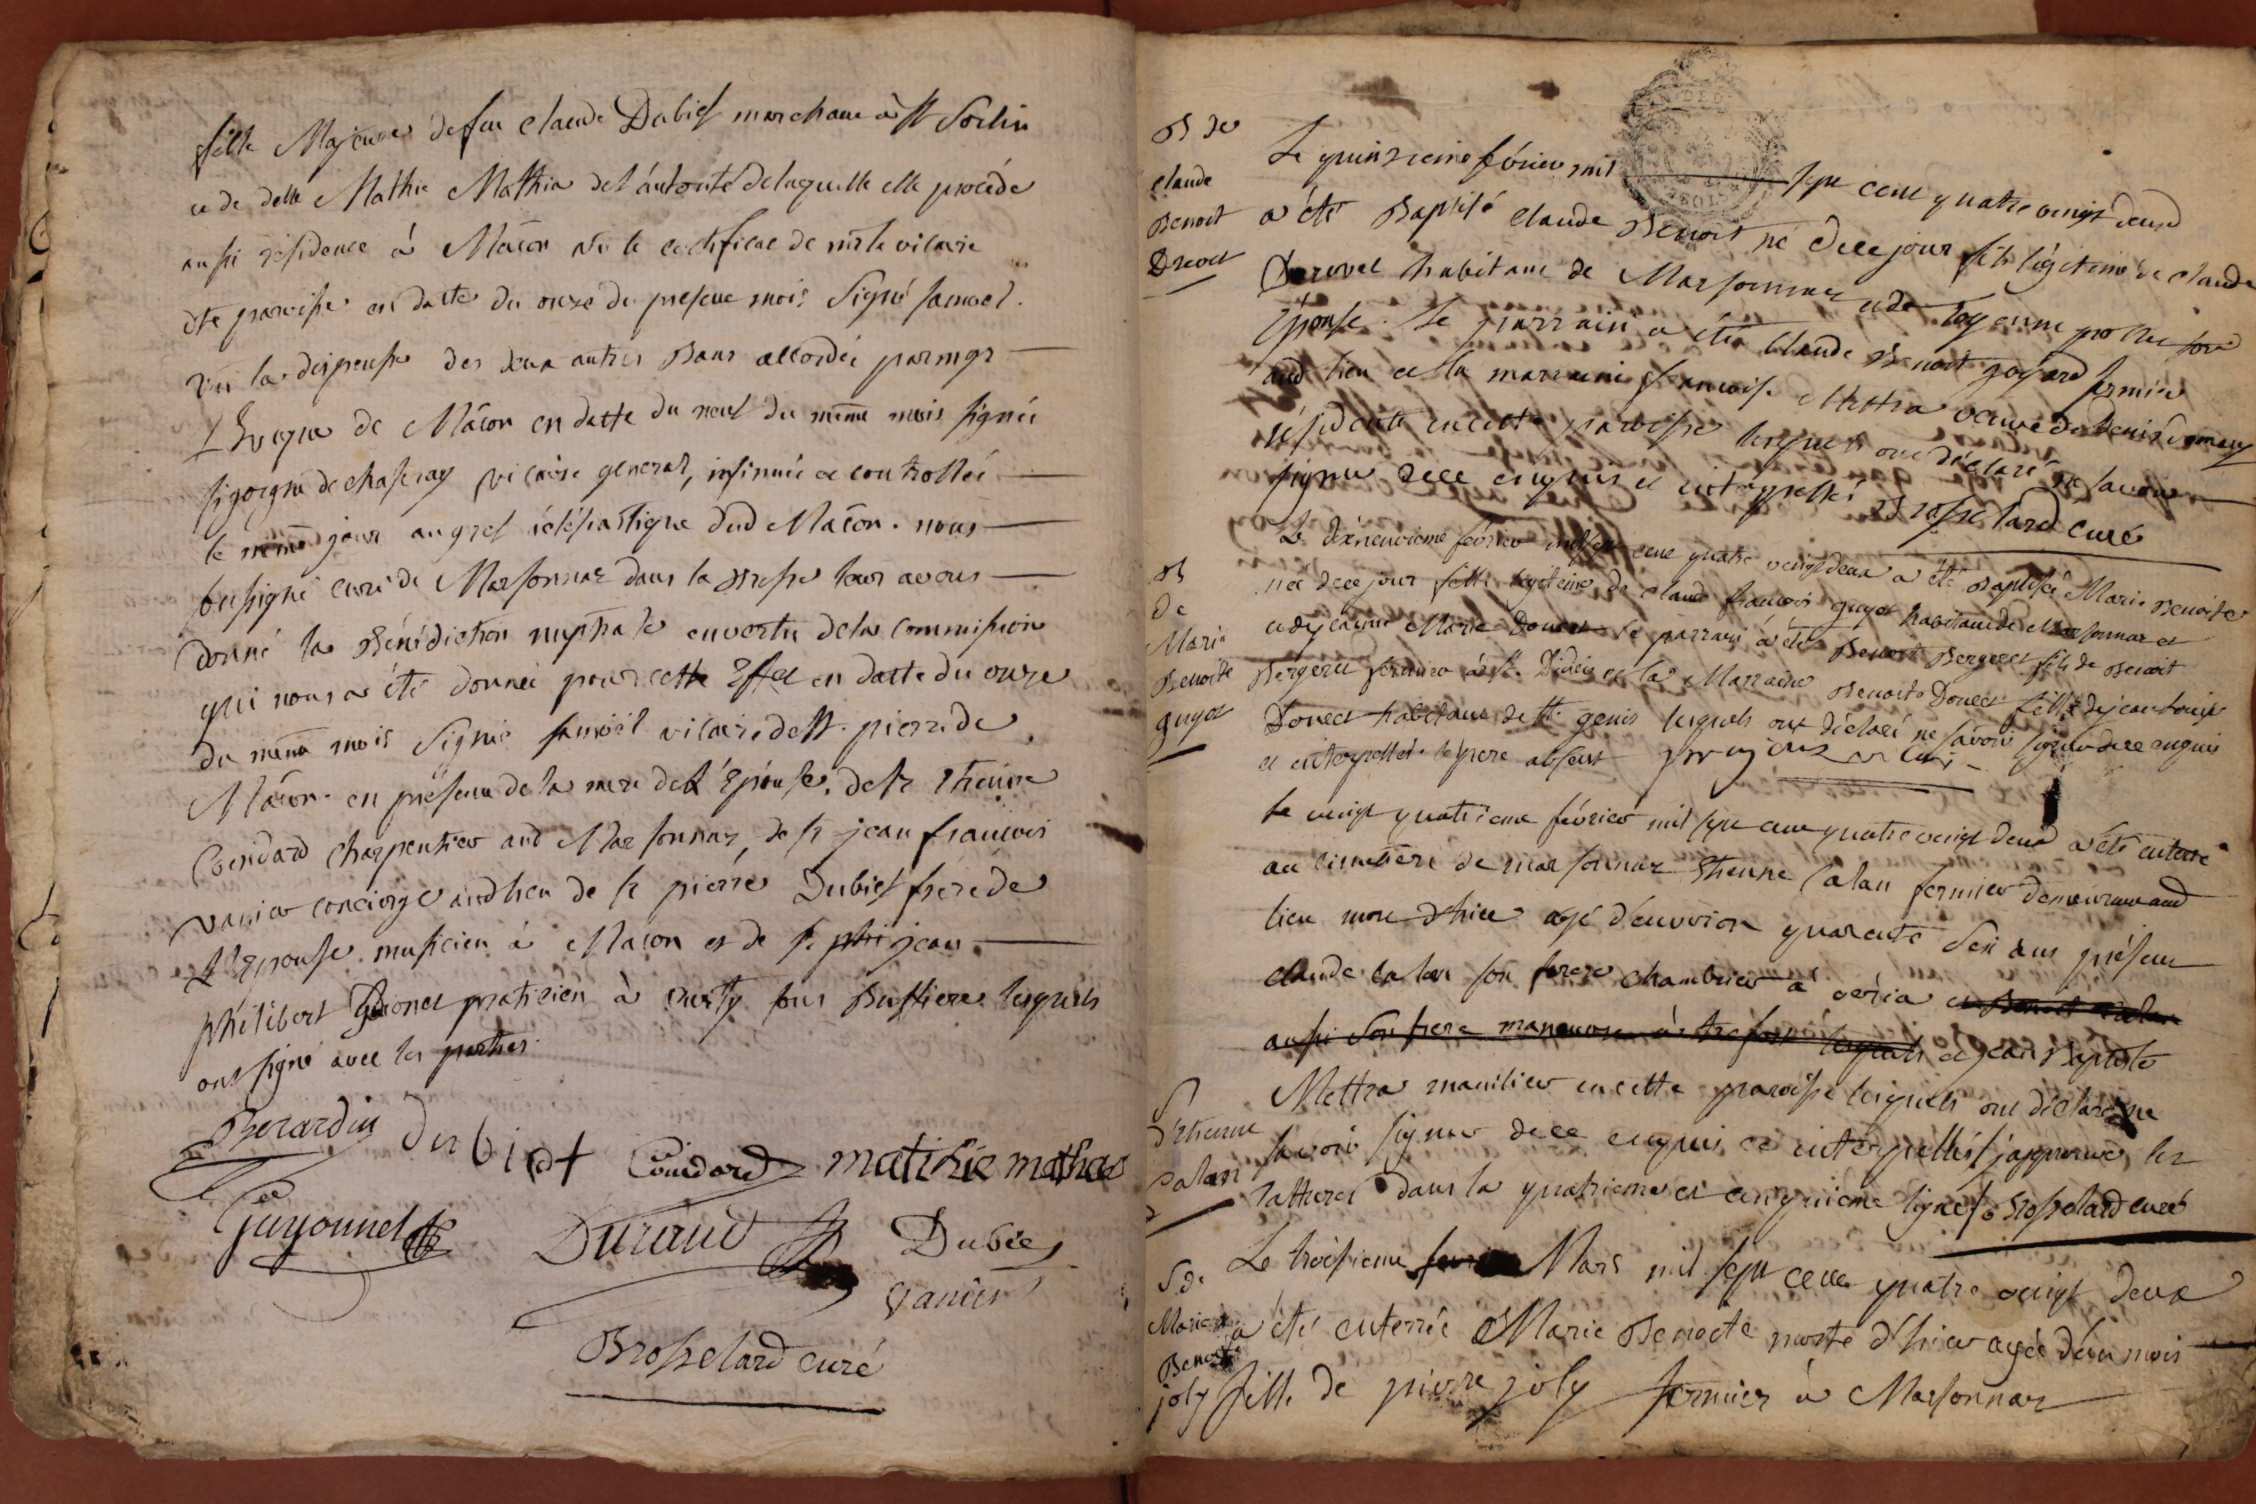 fille Majeure de feu Claude Dubief marchand à St Sorlin
et de delle Mathie Mathia de l'autorité de laquelle elle procède
aussi résidence à Mâcon vû le certificat de mr le vicaire
dte paroisse en datte du onze du présent mois signé Samoel.
vû la dispense des deux autres Bans accordée par mgr
L'Evêque de Mâcon en datte du neuf du même mois signée
Sigorgne de chasseray vicaire general, insinuée et controllée
le même jour au gref éclésiastique dud Mâcon. nous
soussigné curé de Marsonnaz dans la Bresse leur avons
donné la Bénédiction nuptiale en vertu de la commission
qui nous a été donnée pour cette Effet en datte du onze
du même mois signée Samoël vicaire de St. pierre de
Mâcon. en présence de la mere de L'Epouse. de sr Etienne
Coindard charpentier aud Marsonnaz, de sr jean françois
vanier concierge aud lieu de sr pierre Dubief frère de
L'Epouse. musicien à Macon et de sr phi jean
philibert Guionet praticien à sous Bussiere lesquels
ont signé avec les parties.
Berardin Dubief Coindard matihie mathias
Guyonnet Durand Dubief
Vanier
Brosselard curé
B de
claude
Benoit
Drevet
Le quinzieme février mil sept cent quatre vingt deux
a été Baptisé Claude Benoit né de ce jour fils légitime de Claude
Drevet habitant de Marsonnaz et de son
Epouse. Le parrain a été Claude Benoit goyard fermier
aud lieu et la marraine françoise Mettra veuve de Denis
résidente en cette paroisse lesquels ont déclaré ne savoir
signer de ce enquis et interpellés Brosselard curé
B
de
Marie
Benoite
guyot
Le dixneuvieme février mil sept cent quatre vingt deux a été Baptisée Marie Benoite
née de ce jour fille legitime de Claude françois guyot habitant de Marsonnaz et
et de jeanne Marie Donet. Le parrain a été Benoit Bergeret fils de Benoit
Bergeret fermier à St. Didier et la Marraine Benoite Donet fille de jean louis
Donet habitant de St. genis lesquels ont déclaré ne savoir signer de ce enquis
et interpellés le pere absent
Le vingt quatrieme février mil sept cent quatre vingt deux a été enterré
au cimetiere de marsonnaz Etienne Calan fermier demeurant aud
lieu mort d'hier agé d'environ quarante six ans présent
claude Calan son frere chambrier à véria et Benoit Calan
aussi son frere manœuvre à lesquels et jean Baptiste
Mettra manilier en cette paroisse lesquels ont déclaré ne
savoir signer de ce enquis et interpellés j'approuve les
rattures dans la quatrieme et cinquieme ligne Brosselard curé
S
d'Etienne
Calan
S de
Marie
Benoite
joly
Le troisieme Mars mil sept cent quatre vingt deux
a été enterrée Marie Benoite morte d'hier agée d'un mois
fille de pierre joly fermier à Marsonnaz